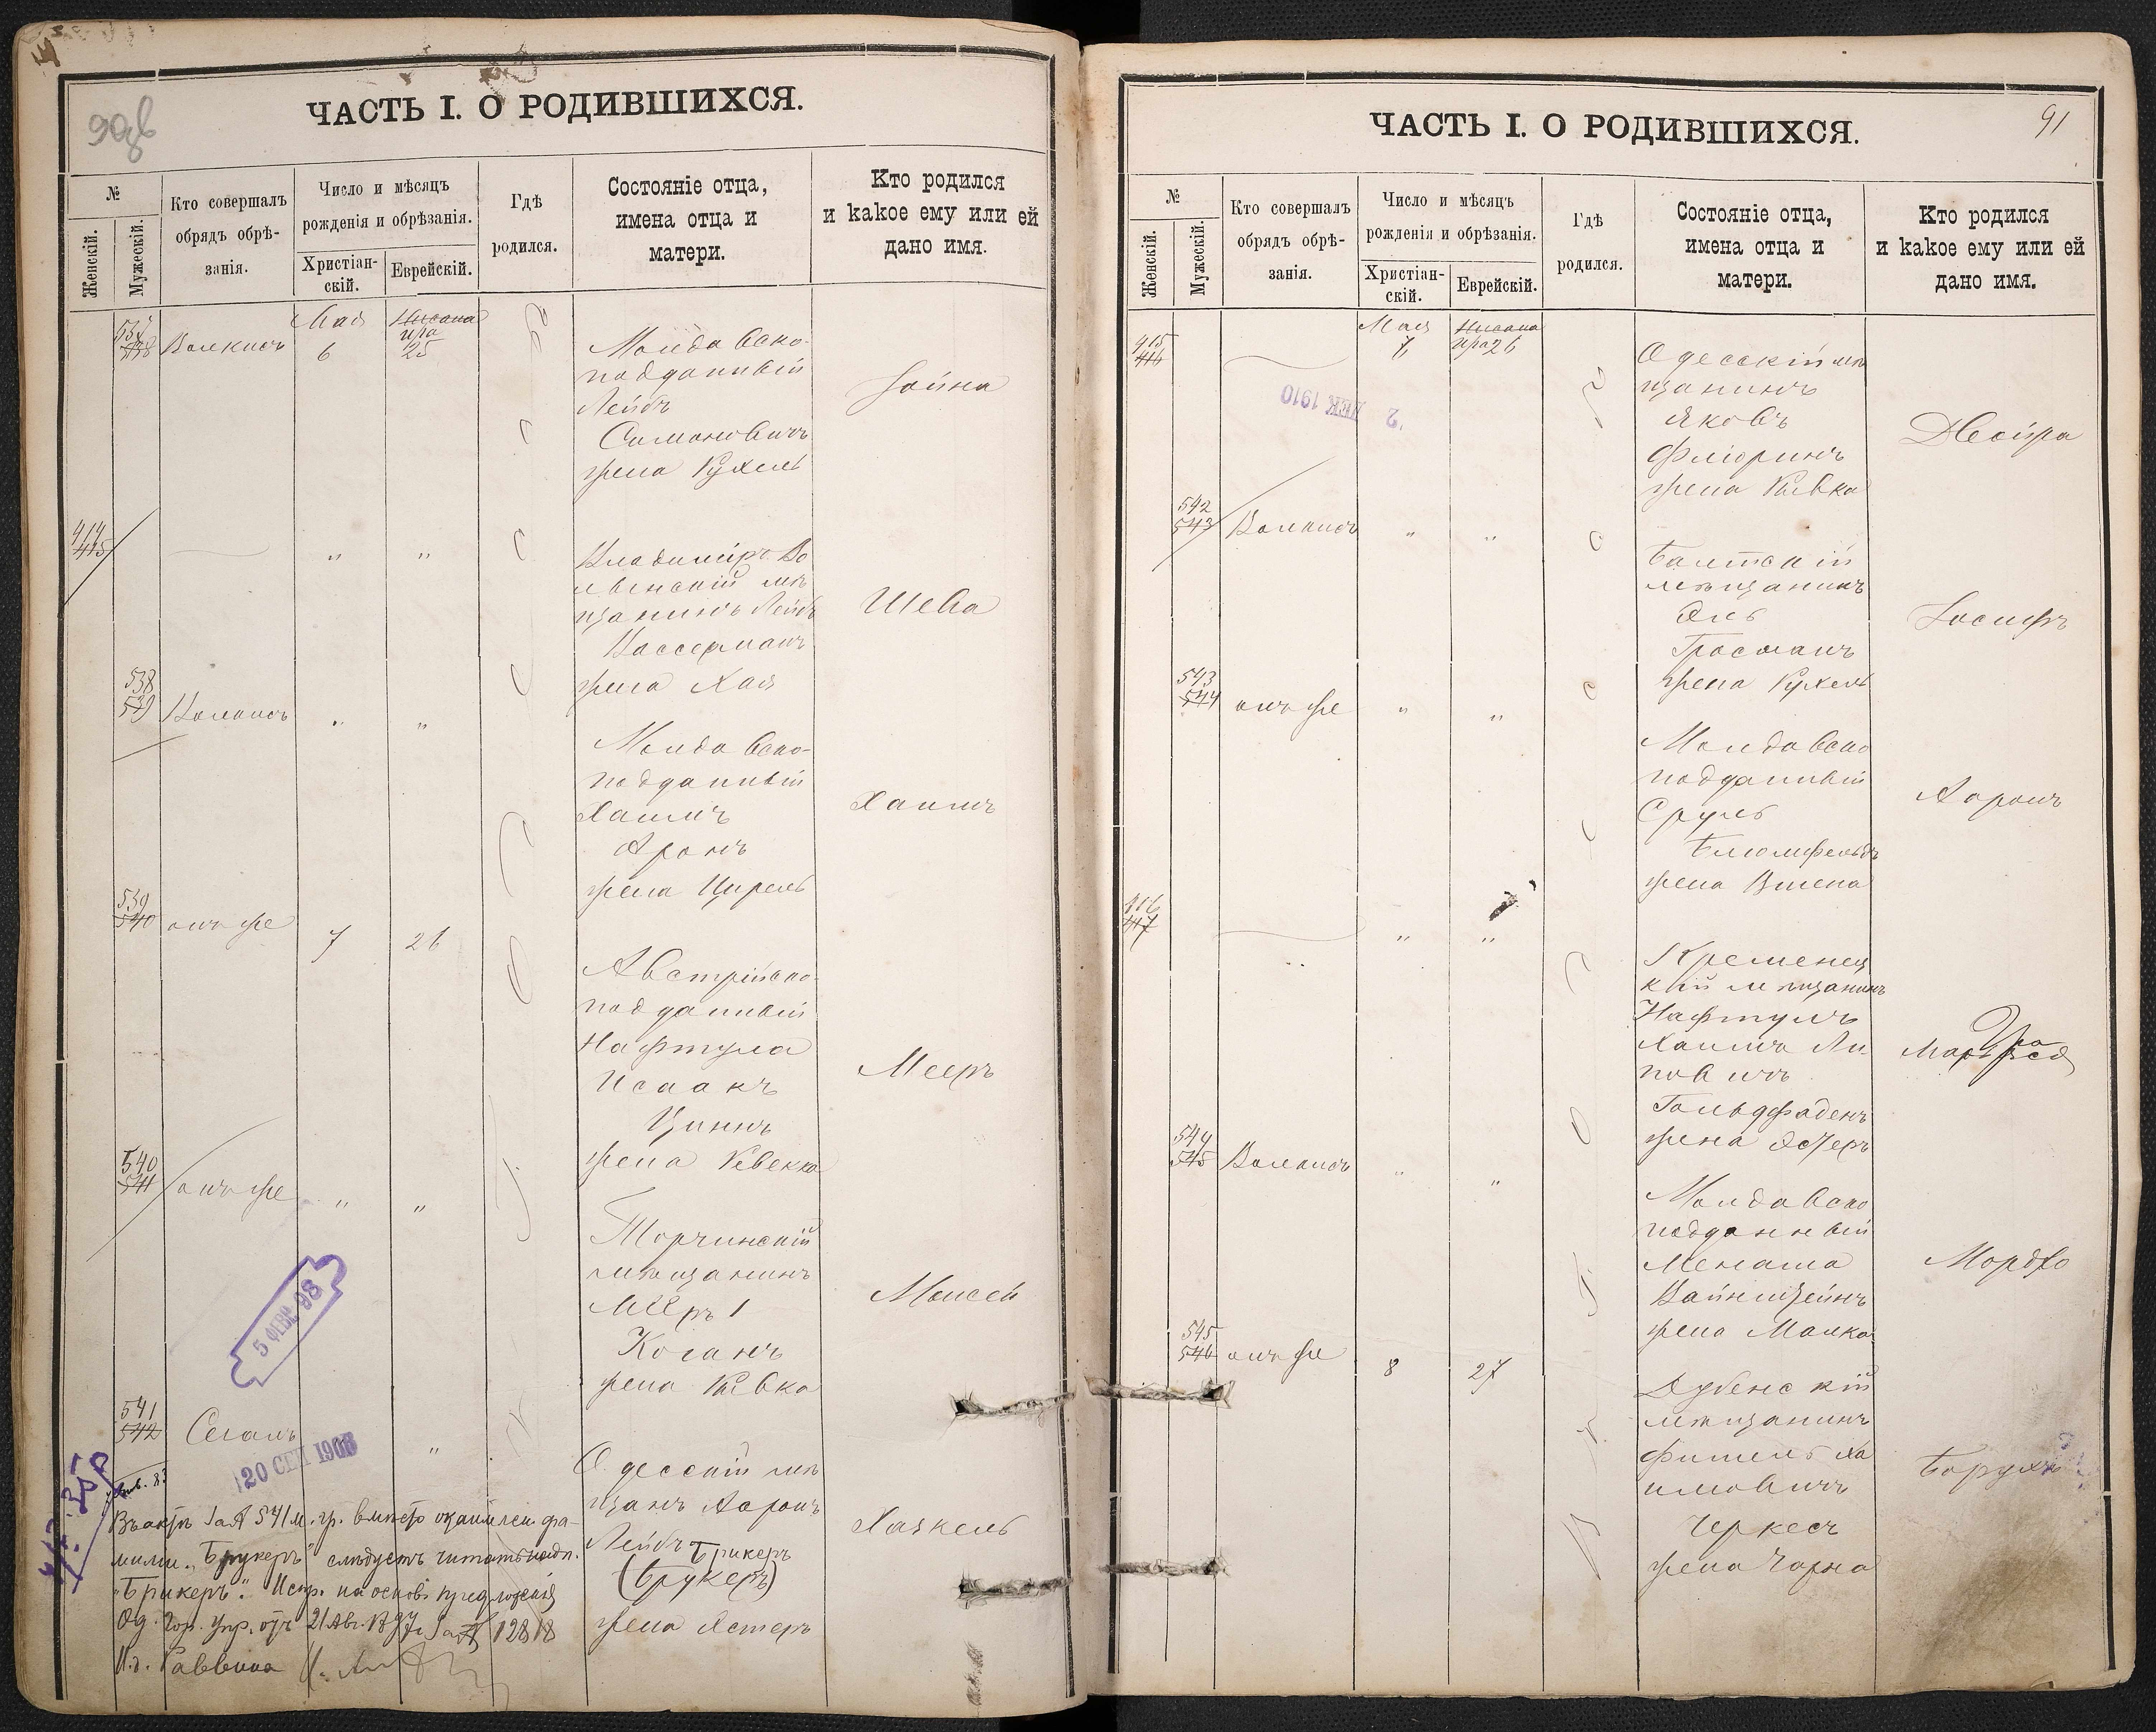 ЧАСТЬ I. О РОДИВШИХСЯ.
№
Женскій.
Мужескій.
Кто совершалъ
обрядъ обрѣ-
занія.
Число и мѣсяцъ
рожденія и обрѣзанія.
Христіан-
скій.
Еврейскій.
Гдѣ
родился.
Состояніе отца,
имена отца и
матери.
Кто родился
и какое ему или ей
дано имя.
537
538
Мая
6
Нисана
Ира
25
Молдавско-
подданный
Лейбъ
Симоновичъ
жена Рухель
414
415
" "
Владиміръ Во
лынскій мѣ
щанинъ Лейбъ
Вассерманъ
жена Хая
Шева
538
539
" "
Молдавско-
подданный
Хаимъ
Аронъ
жена Цирель
Хаимъ
539
540
онъ же
7
26
Австрійско-
подданный
Нафтула
Исаакъ
Циннъ
жена Ревекка
Мееръ
540
541
онъ же
" "
Торчинскій
мѣщанинъ
Мееръ
Коганъ
жена Ривка
Моисей
5 ФЕВР 98
541
542
Сегалъ
"
20 СЕН 1903
Одесскій мѣ
щанъ Ааронъ
Лейбъ Брикеръ
(Брукеръ)
жена Эстеръ
Хаскель
Въ актѣ за № 541 м. гр. вмѣсто фа-
миліи "Брукеръ" слѣдуетъ читать
"Брикеръ". Испр. на основ. предложенія
Од. Гор. Упр. отъ 21 Авг. 1897 г. за № 12818
И. д. Раввина
ЧАСТЬ I. О РОДИВШИХСЯ.
91
№
Женскій.
Мужескій.
Кто совершалъ
обрядъ обрѣ-
занія.
Число и мѣсяцъ
рожденія и обрѣзанія.
Христіан-
скій.
Еврейскій.
Гдѣ
родился.
Состояніе отца,
имена отца и
матери.
Кто родился
и какое ему или ей
дано имя.
415
416
Мая
7
Нисана
Ира 26
2 ДЕК 1910
Одесскій мѣ
щанинъ
Яковъ
Флioринъ
жена Ривка
Двойра
542
543
" "
Балтскій
мѣщанинъ
Эль
Гросманъ
жена Рухель
Іосифъ
543
544
онъ же
" "
Молдавско
подданный
Сруль
Блюмфельдъ
жена
Ааронъ
416
417
" "
Кременец
кій мѣщанинъ
Нафтулъ
Хаимъ Ли-
повичъ
Гольдфаденъ
жена Эстеръ
544
545
" "
Молдавско
подданный
Менаша
Вайнштейнъ
жена Малка
Мордко
545
546
онъ же
8
27
Дубенскій
мѣщанинъ
Фишель Ха
имовичъ
Черкесъ
жена Чарна
Борухъ